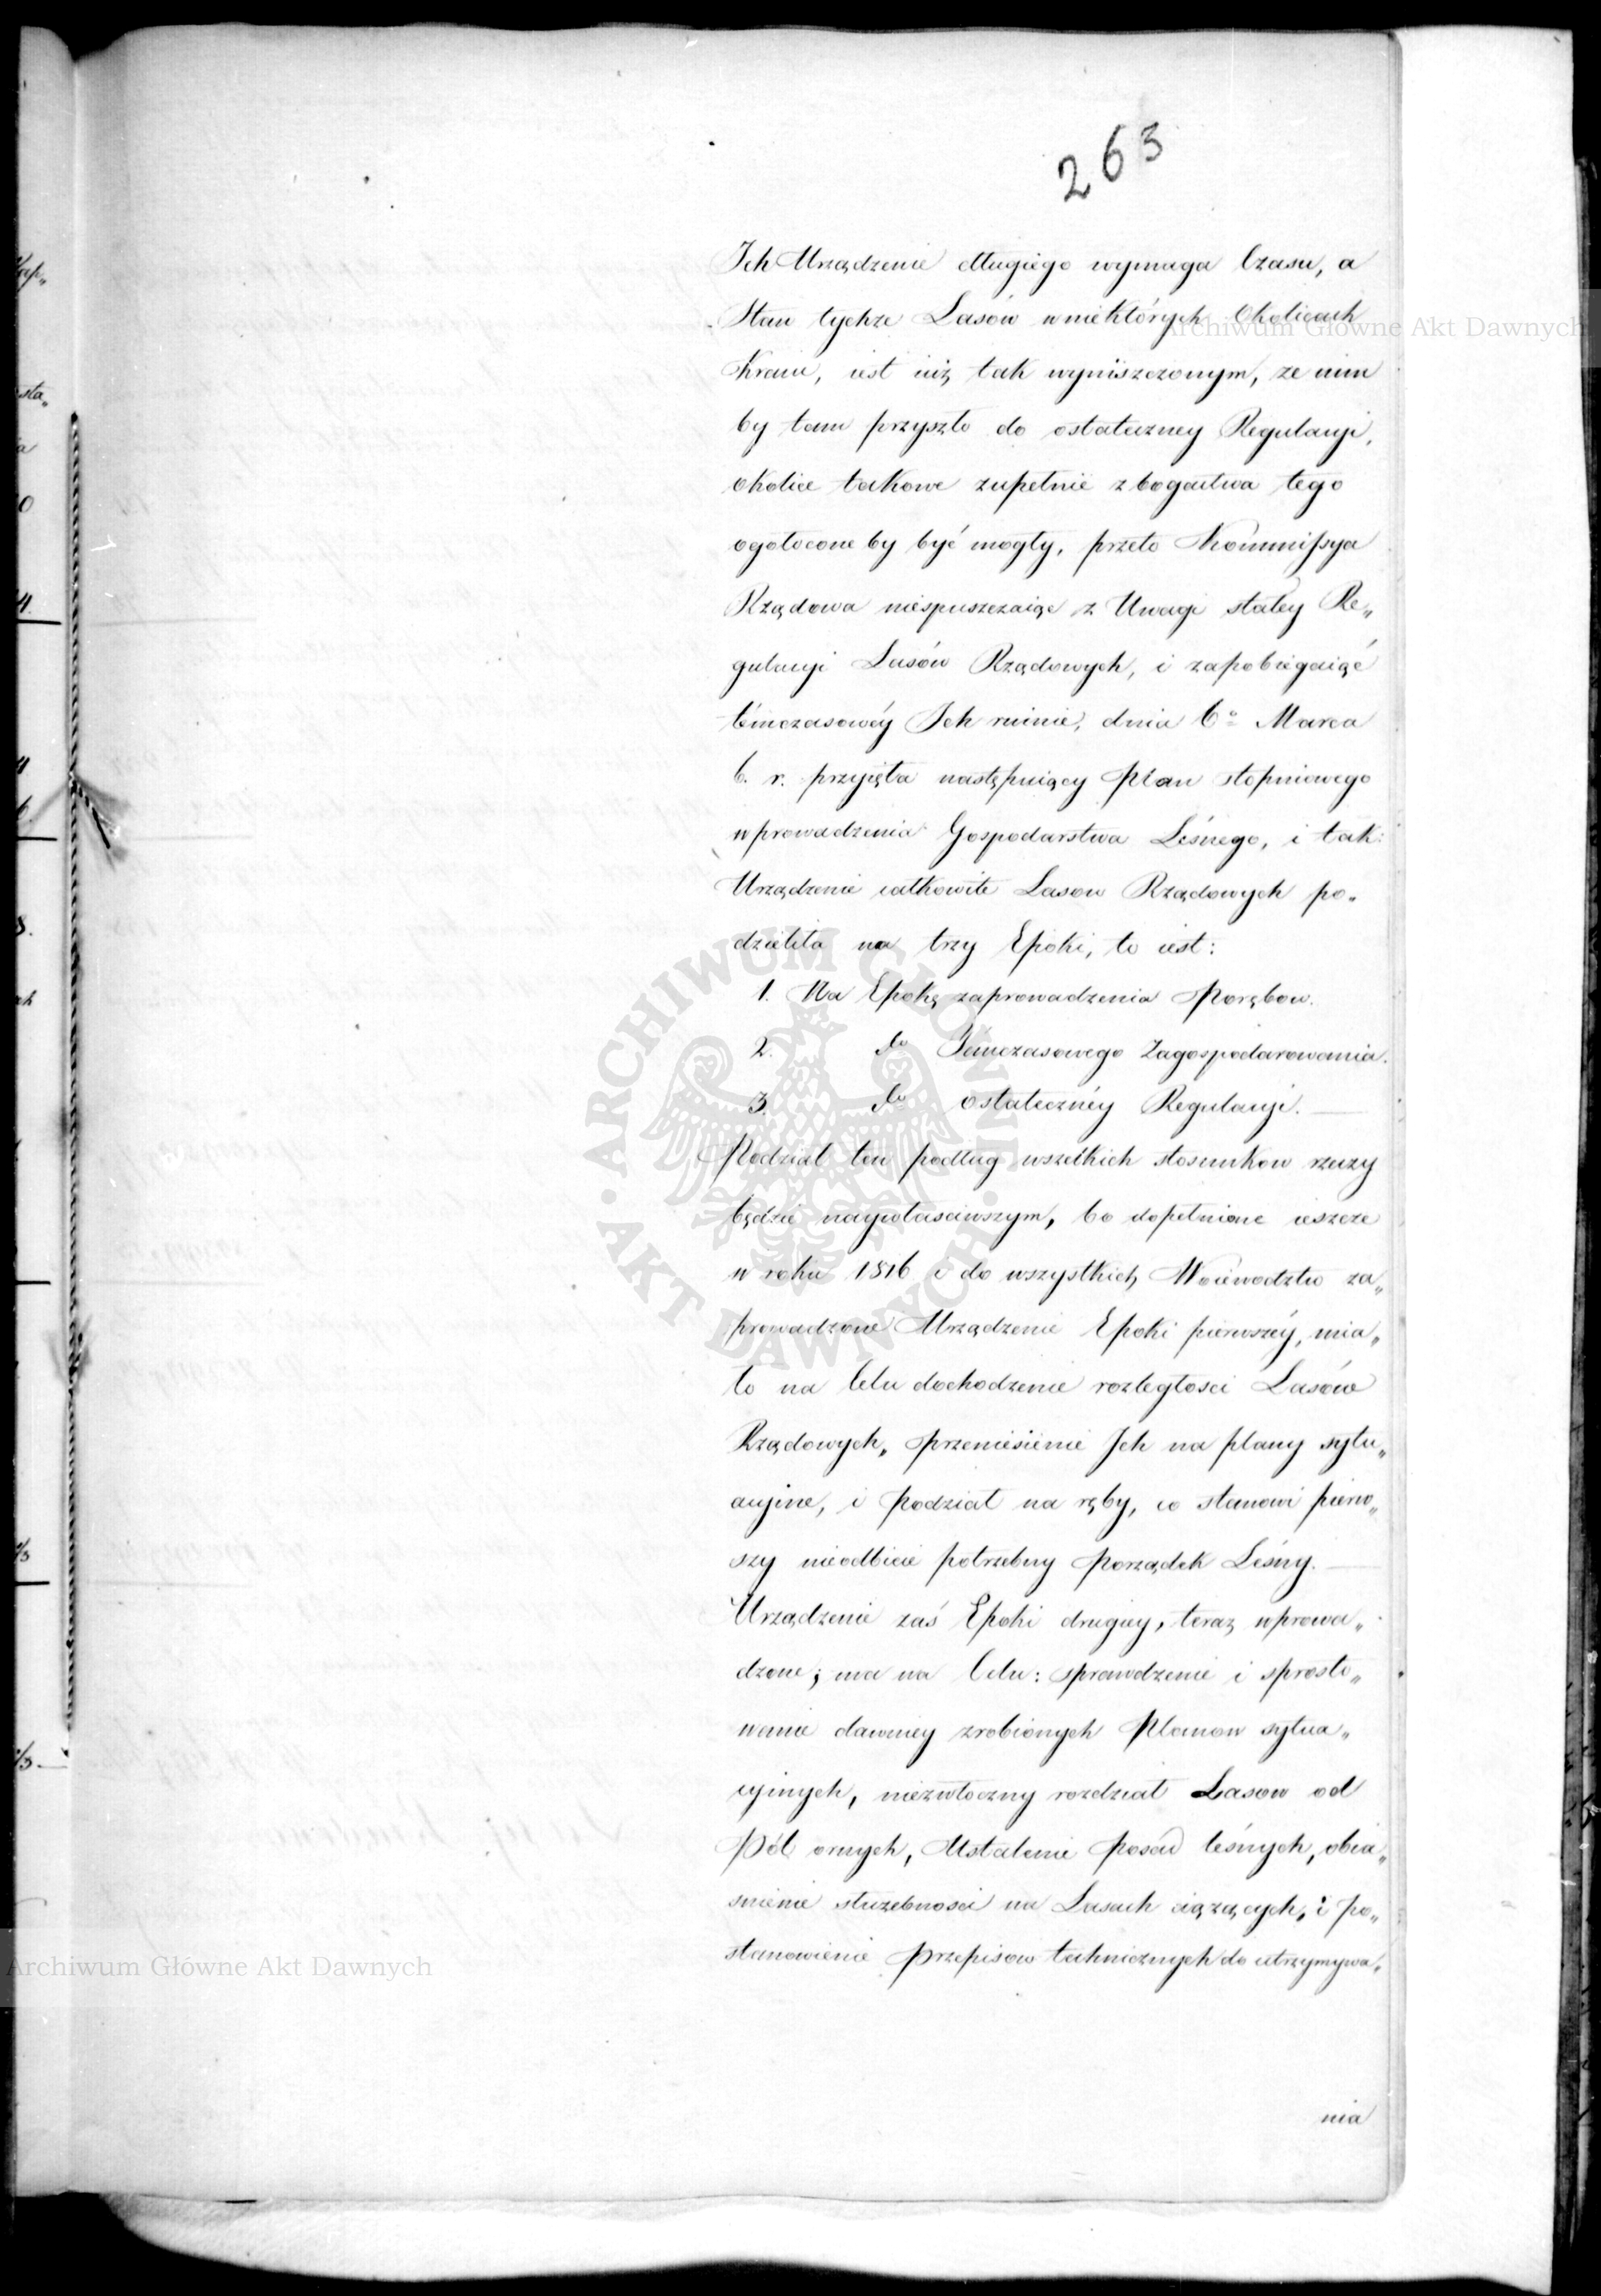 263
Ich Urządzenie długiego wymaga Czasu, a
Stan tychże Lasów w niektórych Okolicach
Kraiu, iest iuż tak wyniszczonym, że nim
by tam przyszło do ostateczney Regulacyi,
okolice takowe zupełnie z bogactwa tego
ogołocone by być mogły, przeto Kommissya
Rządowa niespuszczaiąc z Uwagi stałey Re„
gulacyi Lasów Rządowych, i zapobiegaiąć
témczasowéy Ich ruinie, dnia 6º Marca
b. r. przyięła następuiący Plan stopniowego
wprowadzenia Gospodarstwa Leśnego, i tak:
Urządzenie całkowite Lasow Rządowych po„
dzieliła na trzy Epoki, to iest:
1. Na Epokę zaprowadzenia Porębow.
2. do Témczasowego Zagospodarowania.
3. do ostatecznéy Regulacyi.
Podział ten podług wszelkich stosunkow rzeczy
będzie naywłasciwszym, bo dopełnione ieszcze
w roku 1816 i do wszystkich Woiewodztw za„
prowadzone Urządzenie Epoki pierwszéy, mia„
ło na Celu dochodzenie rozległosci Lasów
Rządowych, przeniesienie Ich na plany sytu„
acyine, i Podział na ręby, co stanowi pierw„
szy nieodbicie potrzebny Porządek Leśny.
Urządzenie zaś Epoki drugiey, teraz wprowa„
dzone; ma na Celu: sprawdzenie i sprosto„
wanie dawniey zrobionych Planow sytua„
cyinych, niezwłoczny rozdział Lasow od
Pól ornych, Ustalenie Posad leśnych, obia„
snienie służebnosci na Lasach ciążących, i po„
stanowienie Przepisow technicznych do utrzymywa„
nia
Archiwum Główne Akt Dawnych
Archiwum Główne Akt Dawnych
ARCHIWUM GŁÓWNE AKT DAWNYCH